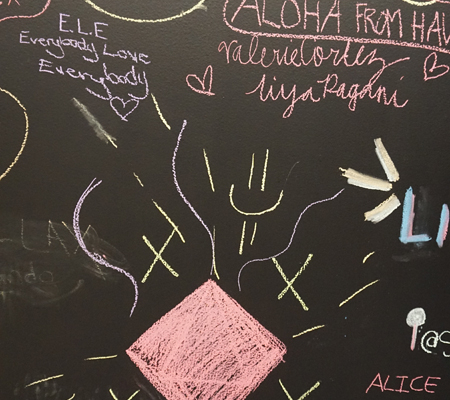 E.L.E
Everybody Love
Everybody
ALOHA FROM HAW
Valerie Cortez
Liya Pagani
LI
@S
ALICE